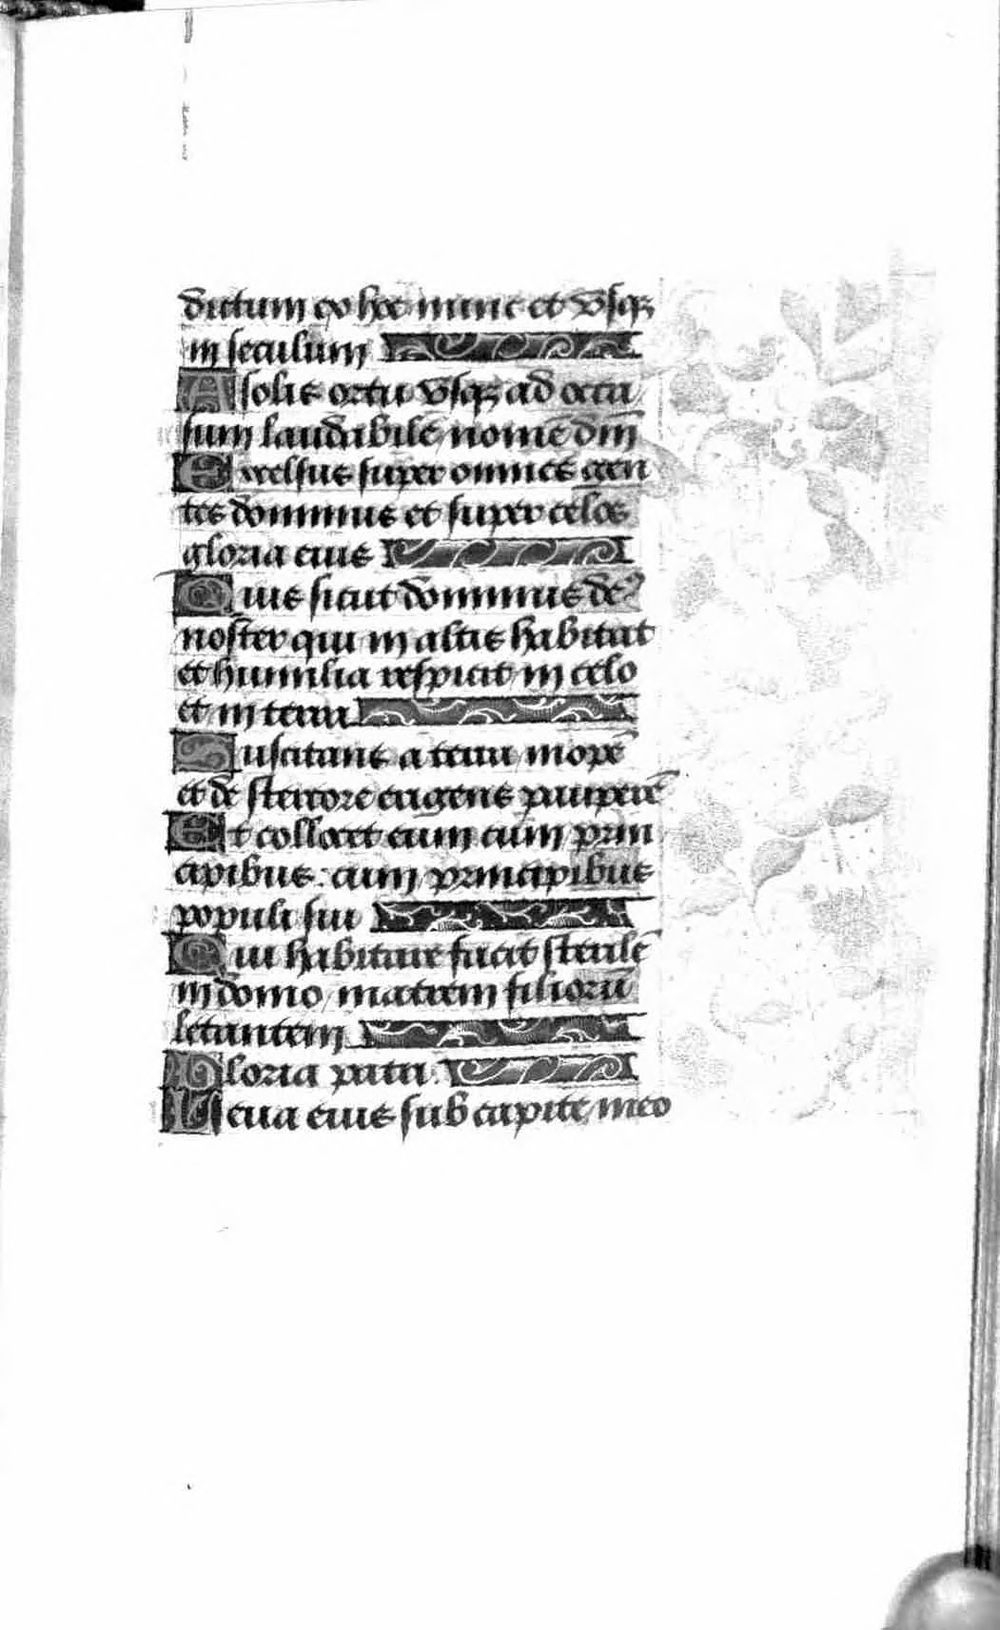 dictum ex hoc nunc et vsqꝫ
in seculum
A solis ortu vsqꝫ ad occa
sum laudabile nomē dm̄
Excelsus super omnes gen
tes dominus et super celos
gloria eius
Quis sicut dominus deꝰ
noster qui in altis habitat
et humilia respicit in celo
et in terra
Suscitans a terra inopē
et de stercore erigens pauperē
Et collocet eum cum prin
cipibus: cum principibus
populi sui
Qui habitare facit sterilē
in domo matrem filiorū
letantem
Gloria patri.
Leua eius sub capite meo